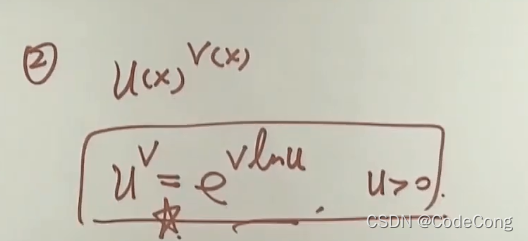 ② u(x)^v(x)
u^v = e^{v ln u} u>0.
☆
CSDN @CodeCong